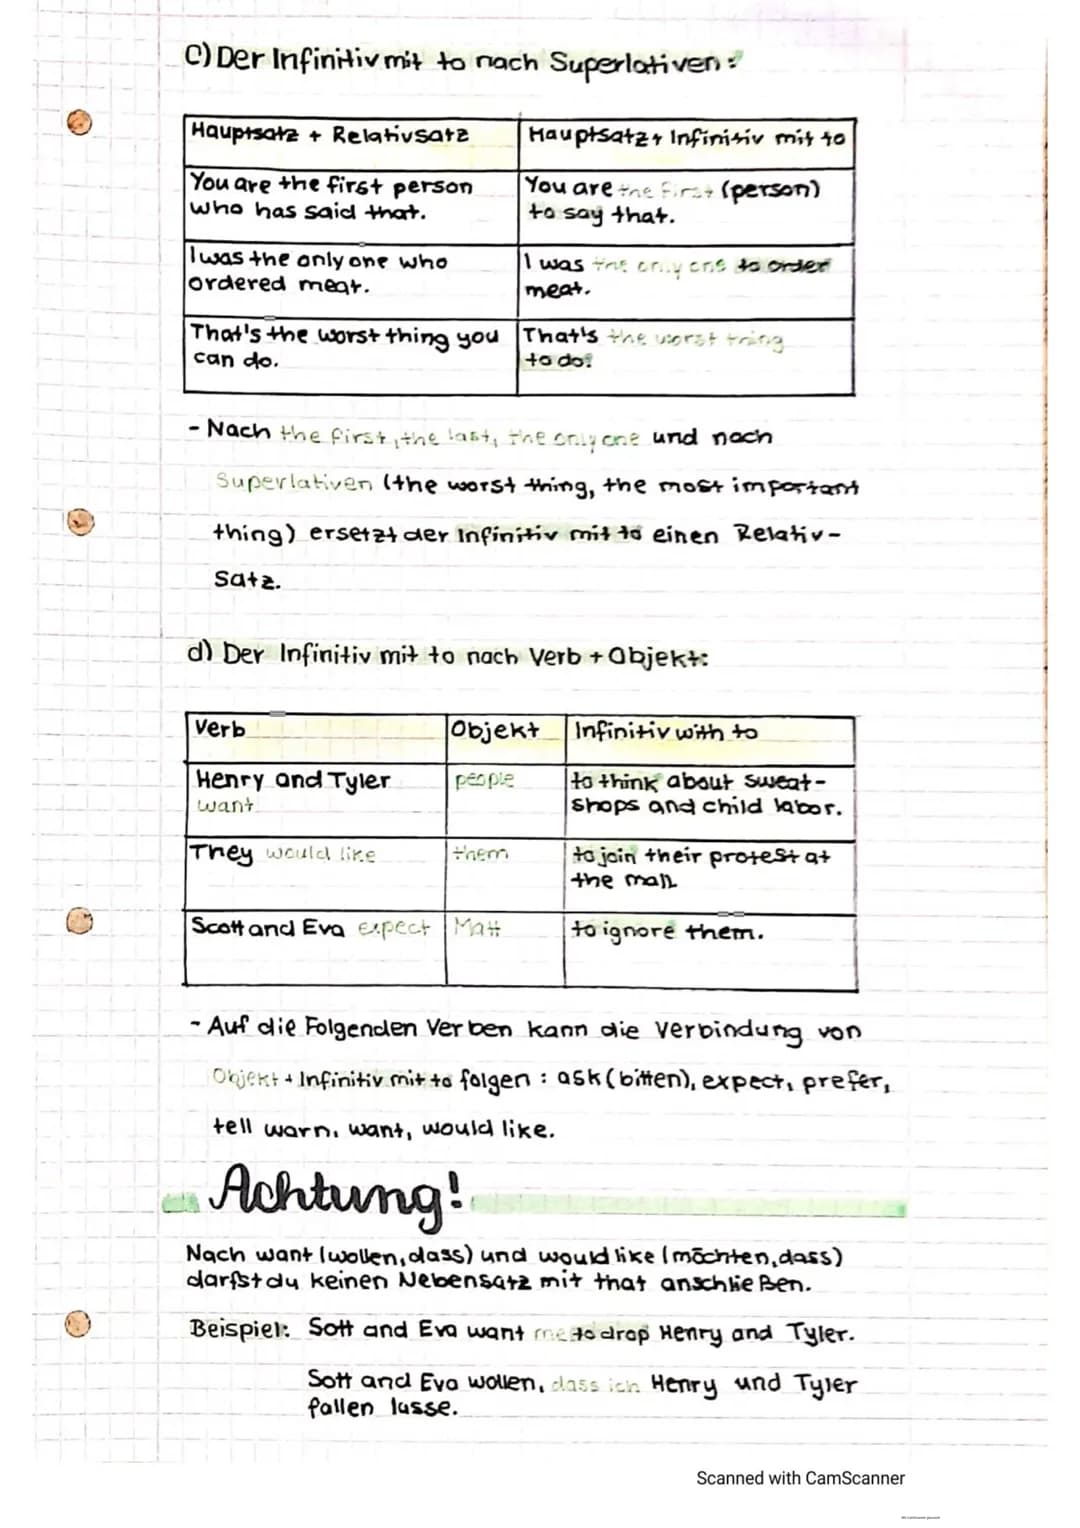 C) Der Infinitiv mit to nach Superlativen:
Hauptsatz + Relativsatz
Hauptsatz + Infinitiv mit to
You are the first person
who has said that.
You are the first (person)
to say that.
I was the only one who
ordered meat.
I was the only one to order
meat.
That's the worst thing you
can do.
That's the worst thing
to do!
- Nach the first, the last, the only one und nach
Superlativen (the worst thing, the most important
thing) ersetzt der Infinitiv mit to einen Relativ-
satz.
d) Der Infinitiv mit to nach Verb + Objekt:
Verb
Objekt
Infinitiv with to
Henry and Tyler
want
people
to think about sweat-
shops and child labor.
They would like
them
to join their protest at
the mall
Scott and Eva expect
Matt
to ignore them.
- Auf die Folgenden Verben kann die Verbindung von
Objekt + Infinitiv mit to folgen : ask (bitten), expect, prefer,
tell warn, want, would like.
Achtung!
Nach want (wollen, dass) und would like (möchten, dass)
darfst du keinen Nebensatz mit that anschließen.
Beispiel: Sott and Eva want me to drop Henry and Tyler.
Sott and Eva wollen, dass ich Henry und Tyler
fallen lasse.
Scanned with CamScanner